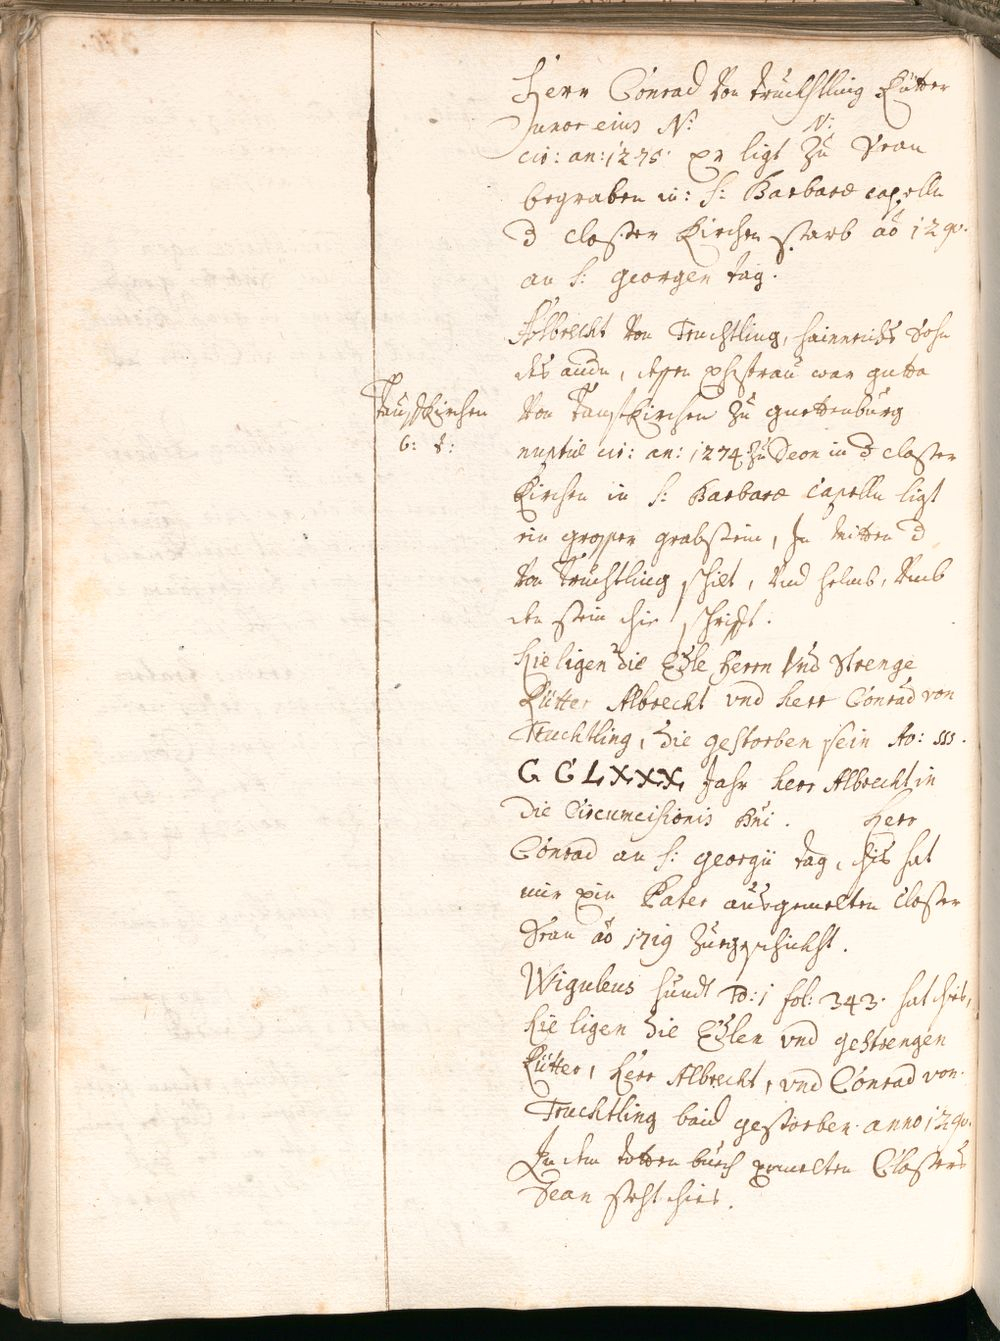 Herr Conrad Von Truchtlling Rütter
Junor eius N: N:
cir: an: 1275. er ligt zu Sean
begraben in: S: Barbaræ capelln
d closter Kirchen starb aō 1290.
an S: georgen tag.
Albrecht Von Truchtling, hainrichs sohn
des andn, dessen ehefrau war gutta
Von Tauffkirchen zu guettenburg
Tauffkirchen
G: t:
nuptiæ cir: an: 1274. zu Seon in d closter
Kirchen in S: Barbaræ Capelln ligt
ein grosser grabstein, In mitten d
Von Truchtling schilt, Und helmb, Vmb
den stein die schrifft.
Hie ligen die Edle Herrn Vnd Strenge
Rütter Albrecht vnd herr Conrad von
Truchtling, die gestorben sein Ao: M.
CCLXXXX Jahr herr Albrecht in
die Circumcisionis Dni. Herr
Conrad an S: georgii tag, dis hat
mir ein Pater aus gemelten Closter
Sean aō 1719 zuegeschickht.
Wiguleus hundt To: 1 fol: 343. hat dies,
Hie ligen die Edlen vnd gestrengen
Rütter, Herr Albrecht, vnd Conrad von
Truchtling baid gestorben anno 1290.
In dem totten buech gemelten Closters
Sean steht dies.